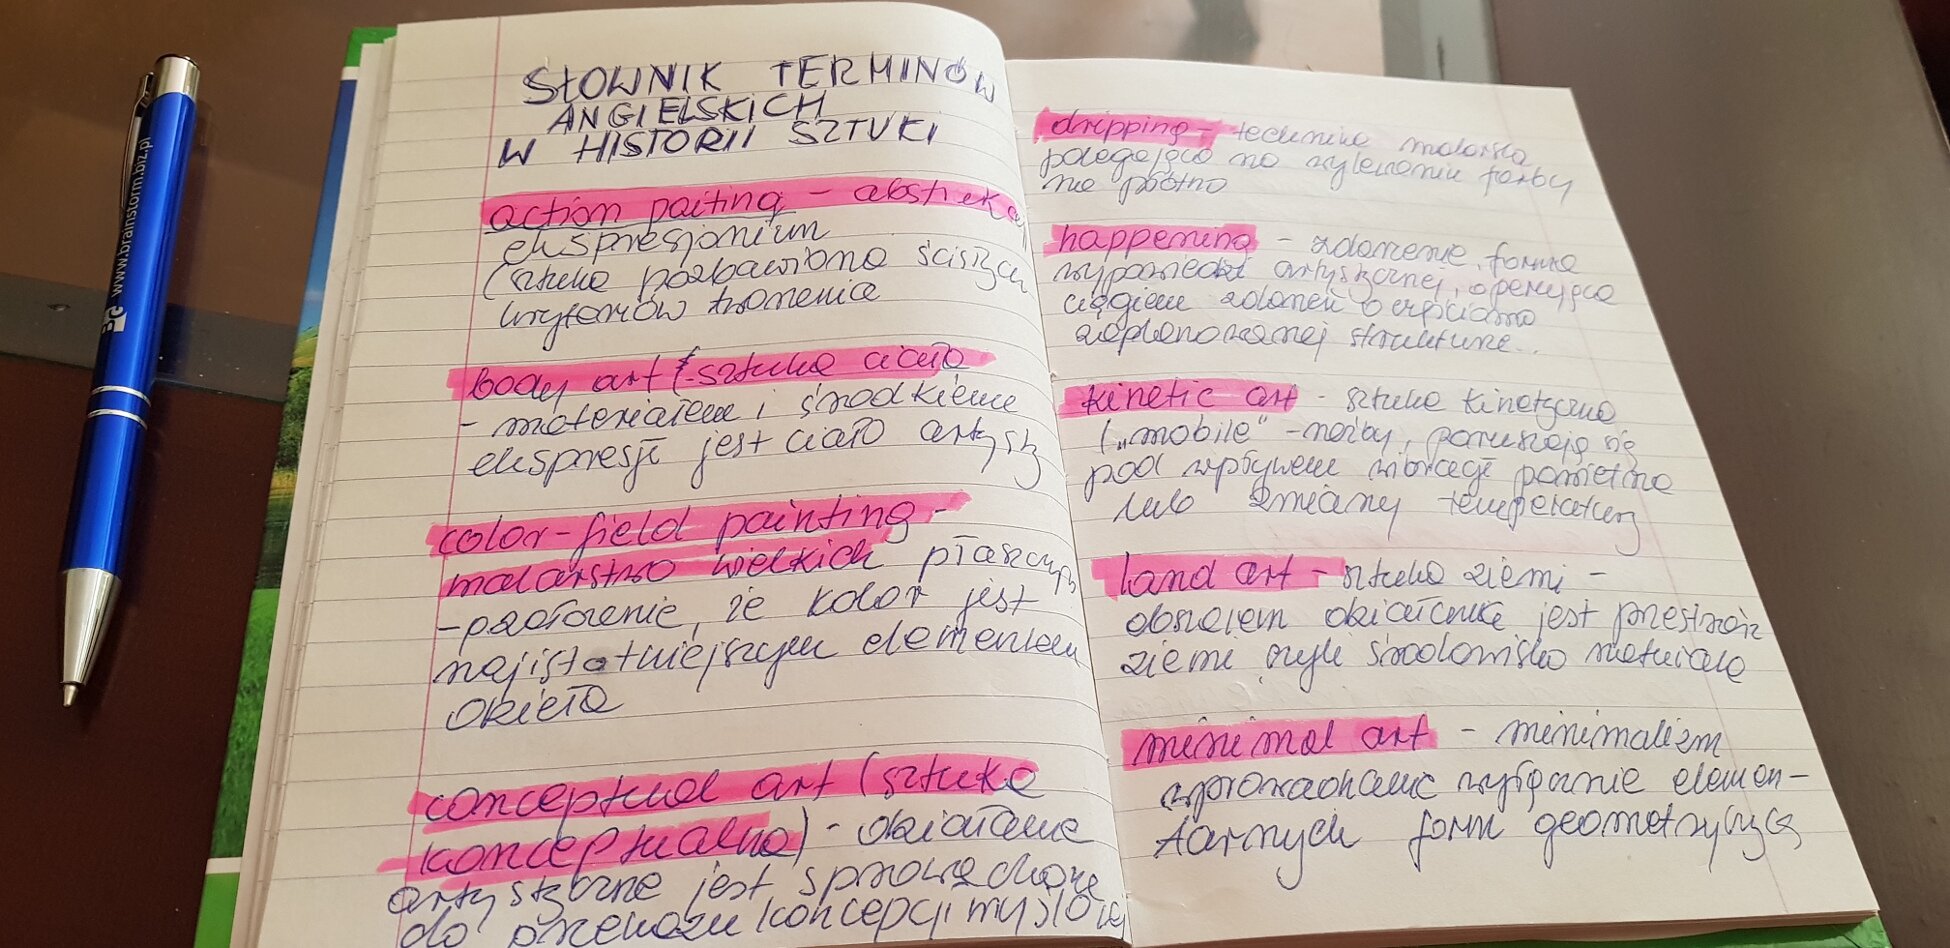 www.brainstorm.biz.pl
SŁOWNIK TERMINÓW
ANGIELSKICH
W HISTORII SZTUKI
action paiting - abstrak
ekspresjonizm
(sztuka pozbawiona ścisłych
kryteriów tworzenia
body art (-sztuka ciała
- materiałem i środkiem
ekspresji jest ciało artysty
color-field painting -
malarstwo wielkich płaszczyzn
- założenie, że kolor jest
najistotniejszym elementem
dzieła
conceptual art (sztuka
konceptualna) - działanie
artystyczne jest sprowadzone
do przekazu koncepcji myślowej
dripping - technika malarska
polegająca na wylewaniu farby
na płótno
happening - zdarzenie, forma
wypowiedzi artystycznej, operująca
ciągiem zdarzeń o
zaplanowanej strukturze..
kinetic art - sztuka kinetyczna
("mobile" - rzeźby, poruszają się
pod wpływem wibracji powietrza
lub zmiany temperatury
land art - sztuka ziemi -
obszarem działania jest przestrzeń
ziemi czyli środowisko naturalne
minimal art - minimalizm
wprowadzanie wyłącznie elemen-
tarnych form geometrycznych